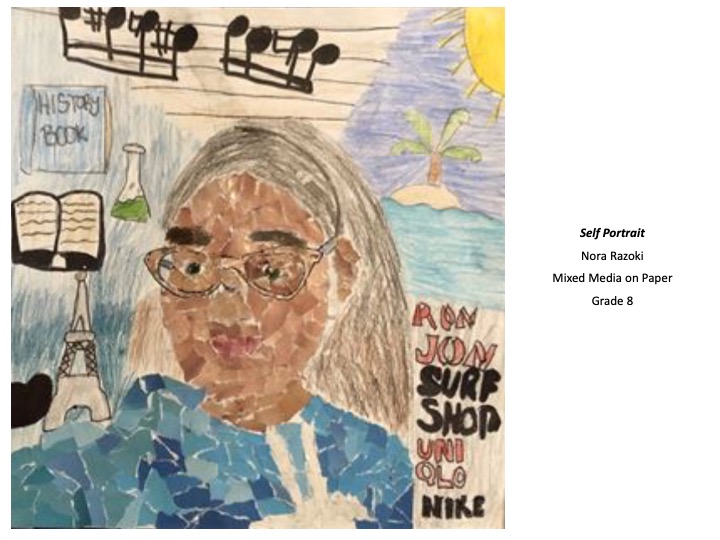 HISTORY
BOOK
RON
JON
SURF
SHOP
UNI
QLO
NIKE
Self Portrait
Nora Razoki
Mixed Media on Paper
Grade 8